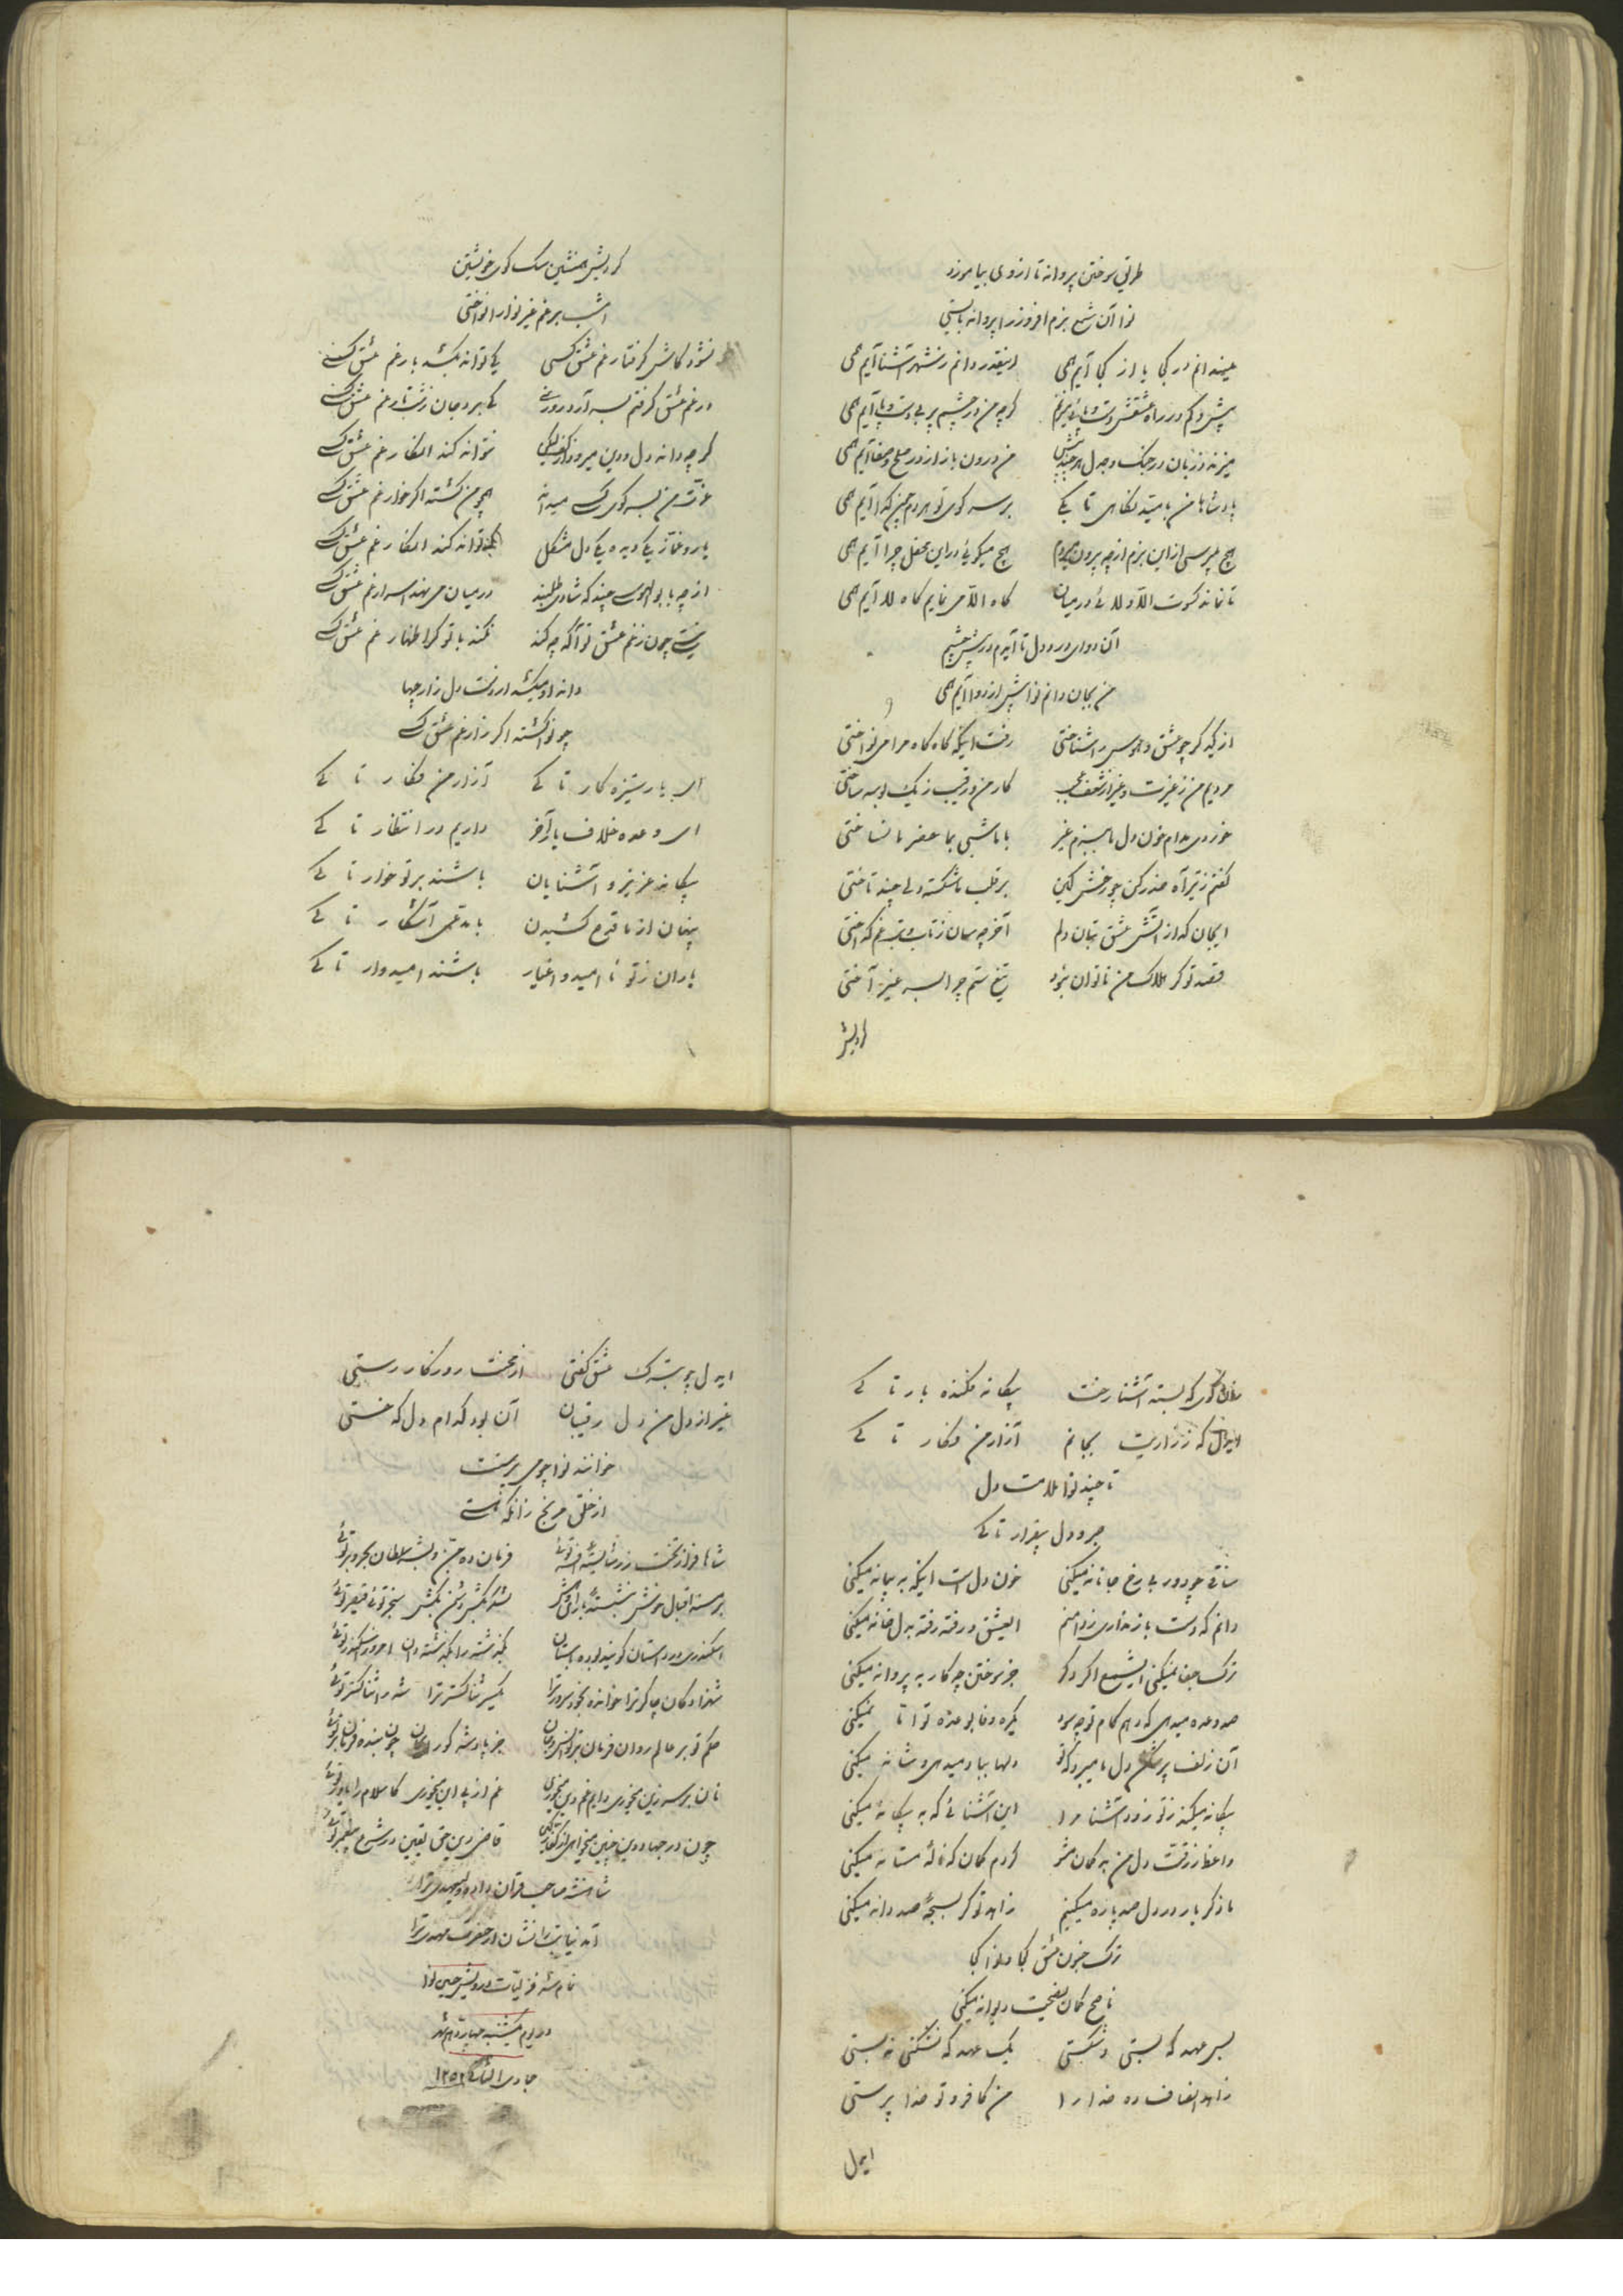 طریق سوختن پروانه تا از وی بیاموزد
نوا آن شمع بزم افروز را پروانه بایستی
نمیدانم در کجا یا از کجا آیم همی اینقدر دانم ز شهر آشنا آیم همی
پیش و کم در راه عشقش دست و پائی میزنم گرچه من در چشم پر بی دست و پا آیم همی
میزند در زبان در جنگ و جدل هرچند من درون باز از در صلح و صفا آیم همی
پادشاها من بامید نگاهی تا بکی بر سر کوی تو هر دم چون گدا آیم همی
هیچ پرسی از این بزم از چه بیرون میروم هیچ میگوئی در این محفل چرا آیم همی
تا نماند کسوت الا و لا در میان گاه الا می نمایم گاه لا آیم همی
آن دوای درد دل تا آیدم در پیش چشم
من بجان دانم نوا پیش از دوا آیم همی
از یکدگر چو عشق و هوس را شناختی رفت اینکه گاه گاه مرا می نواختی
مردیم من ز غیرت و غیر از شعف کار من و رقیب ز یک بوسه ساختی
خوردی مدام خون دل ما ببزم غیر با ما شبی بما حضر ما نساختی
گفتم ز تیر آه حذر کن چو رخش کین بر قلب ما شکسته دلی چند تاختی
ایجان که از آتش عشق بتان دلم آخر چه سان ز تاب و تب غم گداختی
قصد تو گر هلاک من ناتوان نبود تیغ ستم چرا بسر غیر آختی
کردیش
کردیش همنشین سگ کوی خویشتن
امشب برغم غیر نوا را نواختی
نشود کاش گرفتار غم عشق کسی که تواند بکشد بار غم عشق کسی
در غم عشق گرفتم بسر آرد روزی کی برد جان ز شب تار غم عشق کسی
گرچه داند دل و دین میرود از کف نتواند کند انکار غم عشق کسی
عزت من بسر کوی کسی میداند همچو من گشته اگر خوار غم عشق کسی
یار و غماز یکی دیده یکی دل مشکل که تواند کند انکار غم عشق کسی
از چه با بوالهوسی چند که شادی طلبند در میان می نهد اسرار غم عشق کسی
نیست چون ز غم عشق تو آگه چه کند نکند با تو گر اظهار غم عشق کسی
داند او میکشد از دست دل زار چها
چو نوا گشته اگر زار غم عشق کسی
ای یار ستیزه کار تا کی آزار من فکار تا کی
ای وعده خلاف یار آخر داریم در انتظار تا کی
بیگانه عزیز و آشنایان باشند بر تو خوار تا کی
پنهان از ما قدح کشیدن با مدعی آشکار تا کی
یاران ز تو نا امید و اغیار باشند امیدوار تا کی
کوی که بسته آشنا رخت بیگانه فکنده بار تا کی
که ز زاریت بجانم آزار من فکار تا کی
تا چند نوا ملامت دل
جبر و دل بیقرار تا کی
ساقی چو دور بی رخ جانانه میکنی خون دل است اینکه به پیمانه میکنی
دانم که دست باز نداری ز دامنم ایعشق رفته رفته بدل خانه میکنی
ترک جفا نمیکنی ایشمع اگر دگر جز سوختن چه کار به پروانه میکنی
صد وعده میدهی که دهم کام تو چه سود یکره وفا بوعده تو اما نمیکنی
آن زلف پر شکن دل ما میبرد که تو دلها بباد میدهی و شانه میکنی
بیگانه میکند ز تو زود آشنا مرا این آشنائی که به بیگانه میکنی
واعظ ز رقت دل من بد گمان مشو کردم گمان که نالهٔ مستانه میکنی
ما ذکر یار در دل صد پاره میکنیم زاهد تو گر بسبحهٔ صد دانه میکنی
ترک جنون عشق کجا و نوا کجا
ناصح گمان نصیحت دیوانه میکنی
بس عهد که بستی و شکستی یک عهد که نشکنی نبستی
زاهد انصاف ده خدا را من کافر و تو خدا پرستی
ایدل
ایدل چو بترک عشق گفتی از محنت روزگار رستی
غیر از دل من دل رقیبان آن بود کدام دل که خستی
خوانند نوا چو می پرستت
از خلق مرنج زانکه هستی
شاها فراز تخت زر شایستهٔ افسر توئی فرمان ده جن و بشر سلطان بحر و بر توئی
بر مسند اقبال خوش بنشسته سنجر توئی قیصر توئی
اسکندری در داستان گویند بوده باستان بگذشته را بگذشته دان امروز اسکندر توئی
شهزادگان چاکر ترا خوانده بخود سرور ترا یکسر ثنا گستر ترا شه را ثنا گستر توئی
حکم تو بر عالم روان فرمان بر تو انس و جان جز پادشه کو را بجان چون بنده فرمانبر توئی
نان بر سر زین میخوری دایم غم دین میخوری غم از پی این میخوری کاسلام را یاور توئی
چون در جهاد دین چنین میخواهی قاضی دین حق یقین در شرع پیغمبر توئی
شاهنشه صاحب قران داده ولیعهدی ترا
آمد نیابت را نشان از حضرت مهدی ترا
تمام شد غزلیات درویش حسین نوا
در یوم یکشنبه چهاردهم شهر
جمادی الثانی ۱۲۵۲